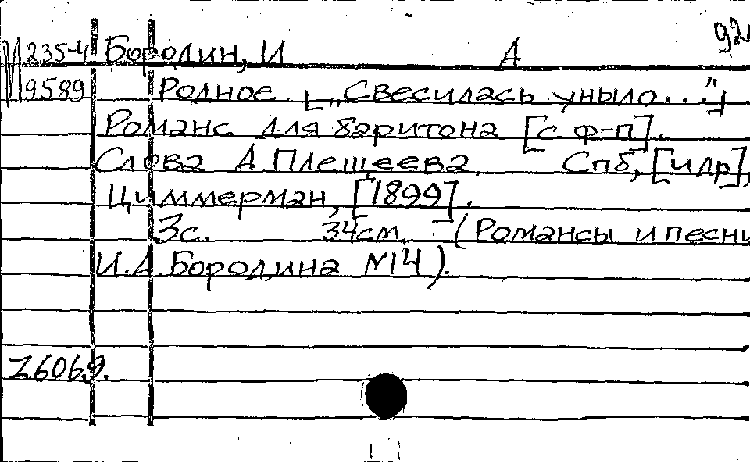 92
М 235-4 Бородин, И А
9589 Родное. [„Свесилась уныло..."]
Романс для баритона [с ф-п].
Слова А. Плещеева. Спб, [и др],
Циммерман, [1899].
3с. 34см. (Романсы и песни
И.А. Бородина №14).
Z6069.